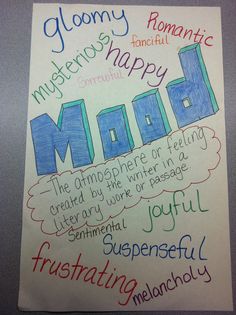 gloomy
Romantic
fanciful
mysterious
happy
Sorrowful
Mood
The atmosphere or feeling
created by the writer in a
literary work or passage
Sentimental
joyful
Suspenseful
frustrating
melancholy